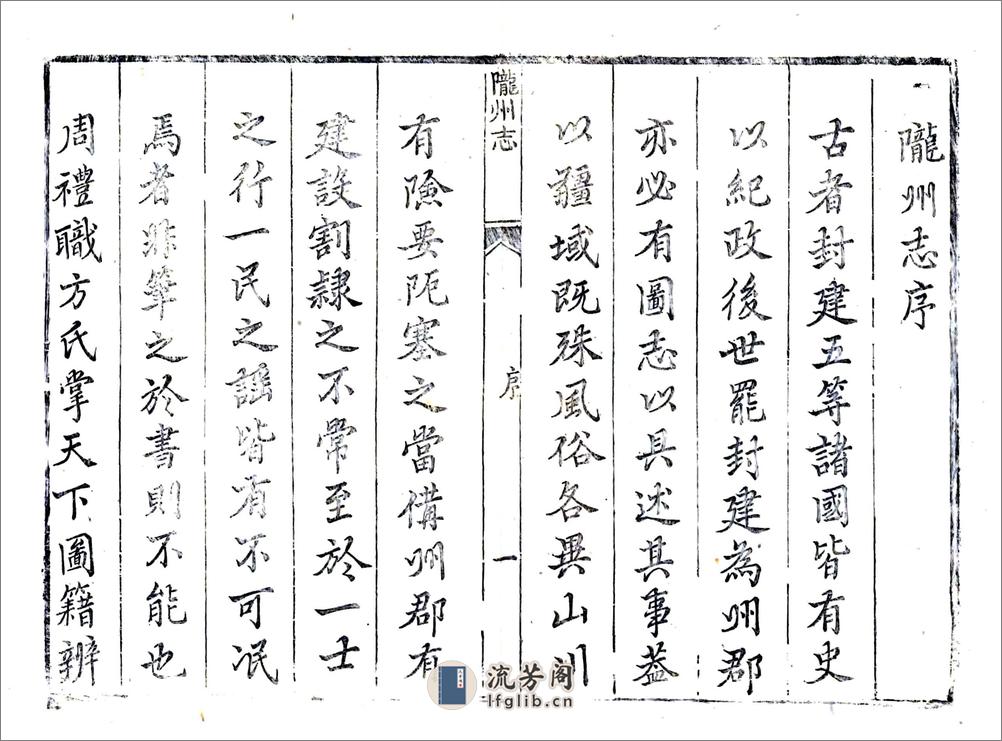 隴州志序
古者封建五等諸國皆有史
以紀政後世罷封建為州郡
亦必有圖志以具述其事蓋
以疆域既殊風俗各異山川
隴州志
序
一
有險要阨塞之當備州郡有
建設割隸之不常至於一士
之行一民之謡皆有不可泯
焉者非筆之於書則不能也
周禮職方氏掌天下圖籍辨
流芳阁
lfglib.cn